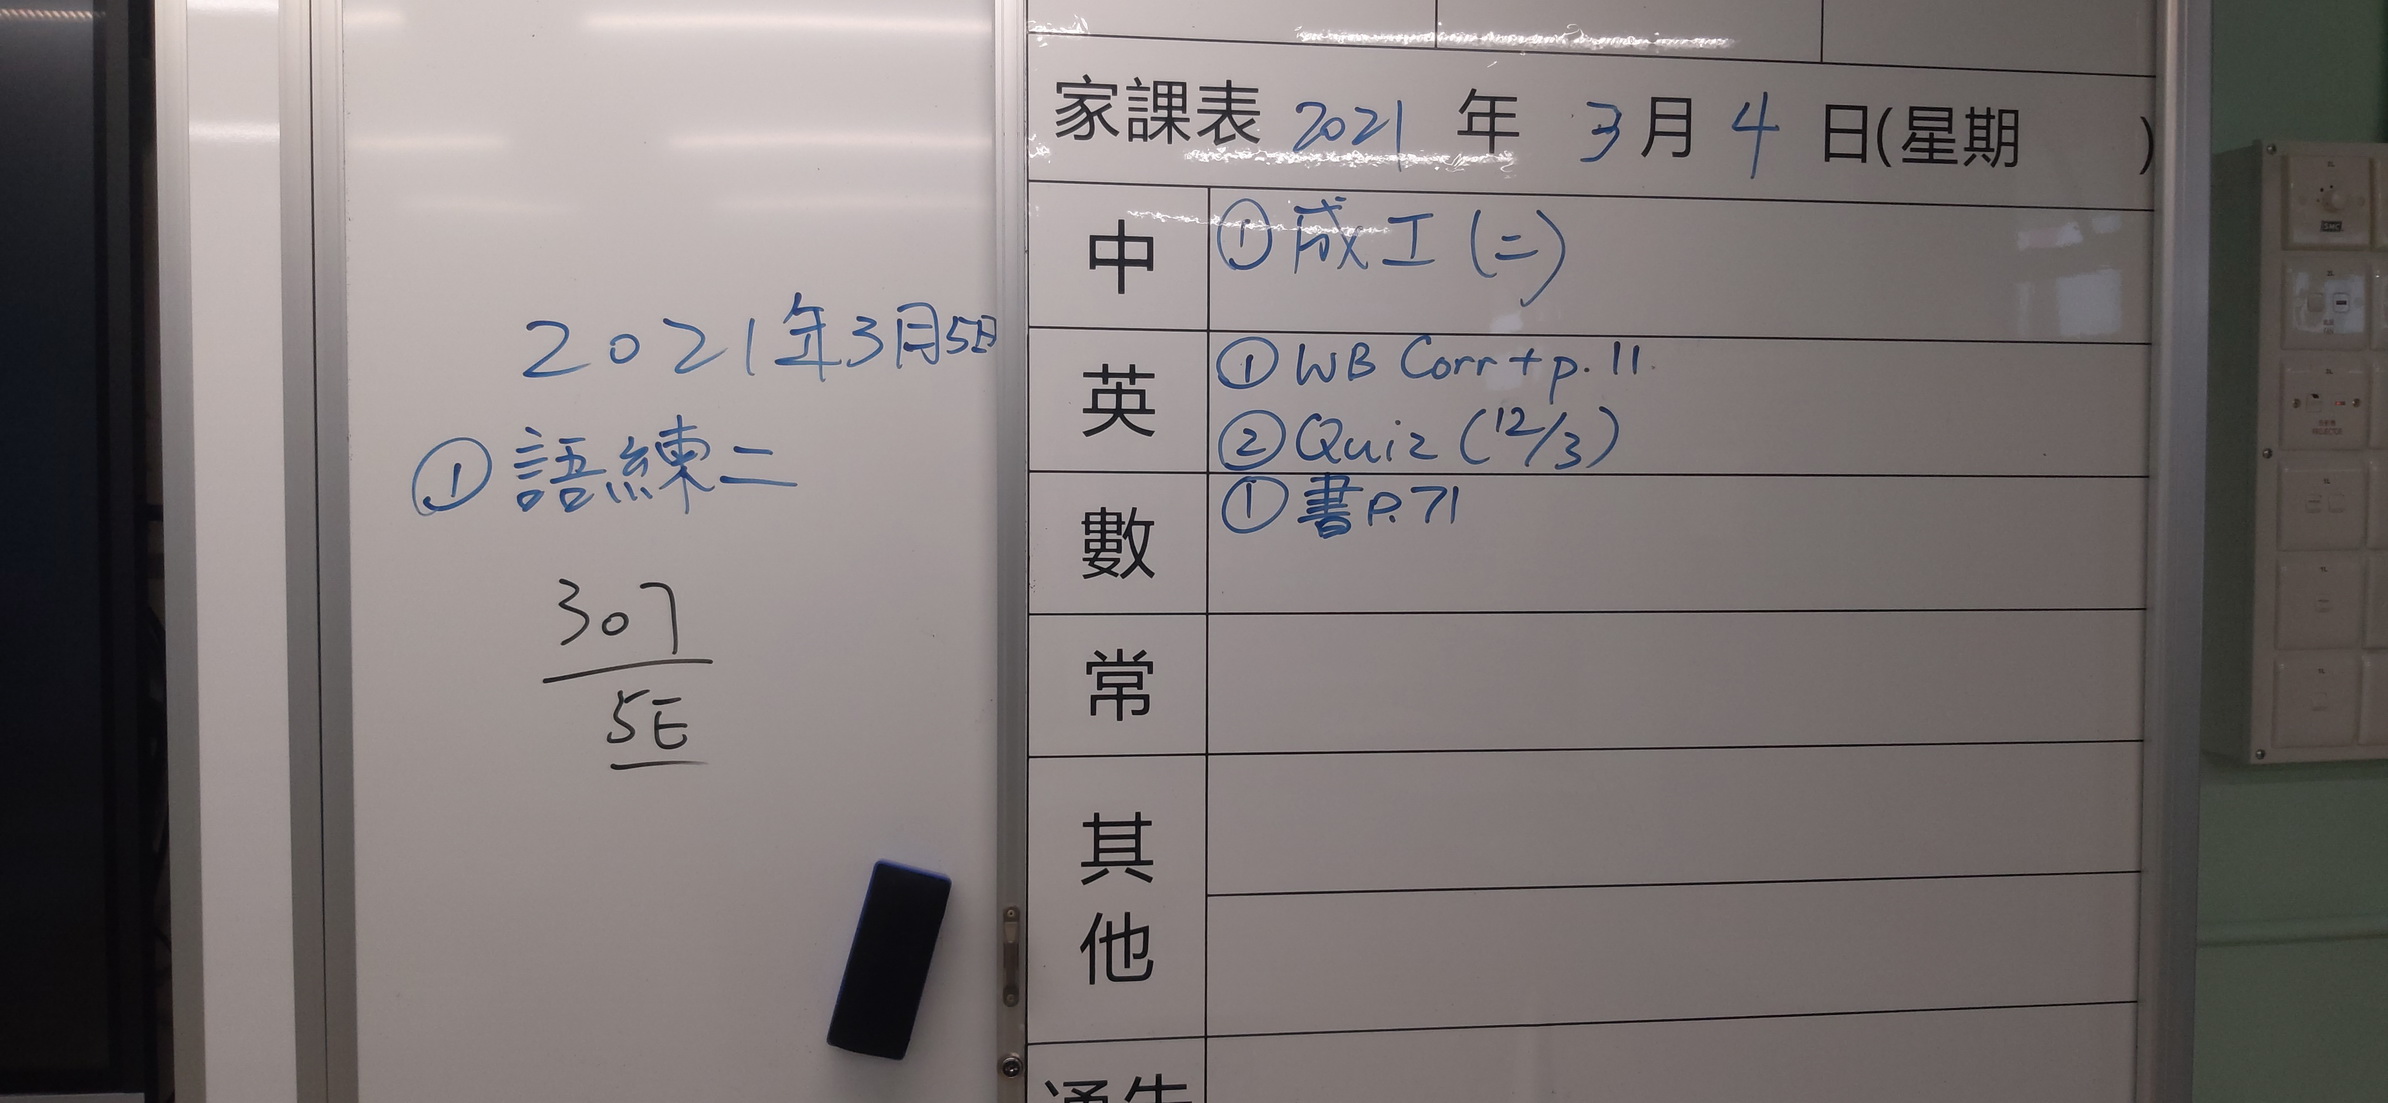 2021年3月5日
① 語練二
307
5E
家課表 2021 年 3 月 4 日(星期 )
中 ① 成工(二)
英 ① WB Corr + p. 11
② Quiz (12/3)
數 ① 書 P. 71
常
其他
通告